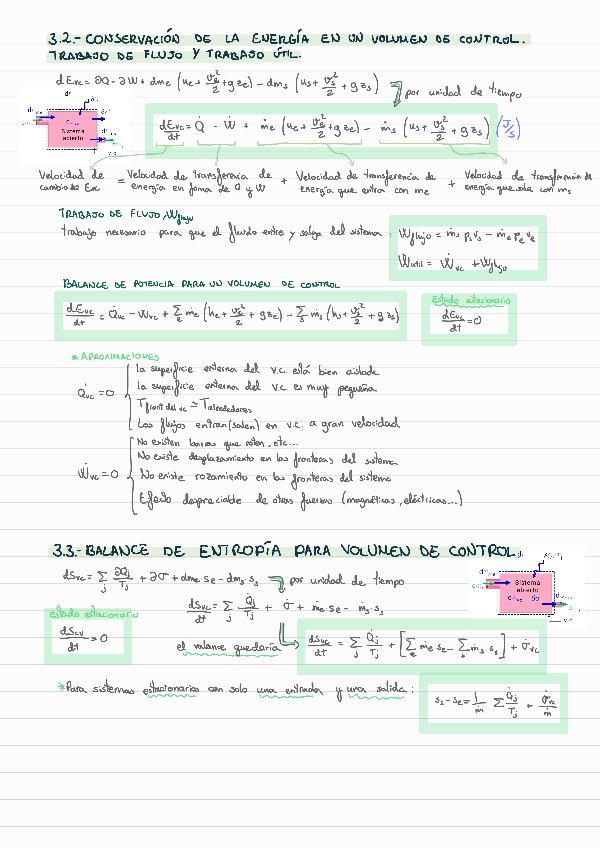 3.2.- CONSERVACIÓN DE LA ENERGÍA EN UN VOLUMEN DE CONTROL.
TRABAJO DE FLUJO Y TRABAJO ÚTIL.
dE_vc = ∂Q - ∂W + dm_e (u_e + v_e²/2 + g z_e) - dm_s (u_s + v_s²/2 + g z_s) por unidad de tiempo
Sistema abierto
dE_vc/dt = Q̇ - Ẇ + ṁ_e (u_e + v_e²/2 + g z_e) - ṁ_s (u_s + v_s²/2 + g z_s) (J/s)
Velocidad de cambio de E_vc = Velocidad de transferencia de energía en foma de Q y W + Velocidad de transferencia de energía que entra con m_e + Velocidad de transferencia de energía que sale con m_s
TRABAJO DE FLUJO, W_flujo
trabajo necesario para que el fluido entre y salga del sistema : Ẇ_flujo = ṁ_s p_s v_s - ṁ_e p_e v_e
Ẇ_util = Ẇ_vc + Ẇ_flujo
BALANCE DE POTENCIA PARA UN VOLUMEN DE CONTROL
dE_vc/dt = Q̇_vc - Ẇ_vc + Σ_e ṁ_e (h_e + v_e²/2 + g z_e) - Σ_s ṁ_s (h_s + v_s²/2 + g z_s)
Estado estacionario
dE_vc/dt = 0
* APROXIMACIONES
Q̇_vc = 0
la superficie externa del v.c. está bien aislada
la superficie externa del v.c. es muy pequeña
T_front del vc ≃ T_alrededores
Los flujos entran(salen) en v.c. a gran velocidad
Ẇ_vc = 0
No existen barras que roten, etc...
No existe desplazamiento en las fronteras del sistema
No existe rozamiento en las fronteras del sistema
Efecto despreciable de otras fuerzas (magnéticas, eléctricas...)
3.3.- BALANCE DE ENTROPÍA PARA VOLUMEN DE CONTROL.
dS_vc = Σ_j ∂Q_j/T_j + ∂σ + dm_e s_e - dm_s s_s por unidad de tiempo
Sistema abierto
dS_vc/dt = Σ_j Q̇_j/T_j + σ̇ + ṁ_e s_e - ṁ_s s_s
estado estacionario
dS_cv/dt = 0
el valance quedaría dS_vc/dt = Σ_j Q̇_j/T_j + [Σ_e ṁ_e s_e - Σ_s ṁ_s s_s] + σ̇_vc
*Para sistemas estacionarios con solo una entrada y una salida :
s_s - s_e = 1/ṁ Σ Q̇_j/T_j + σ̇_vc/ṁ